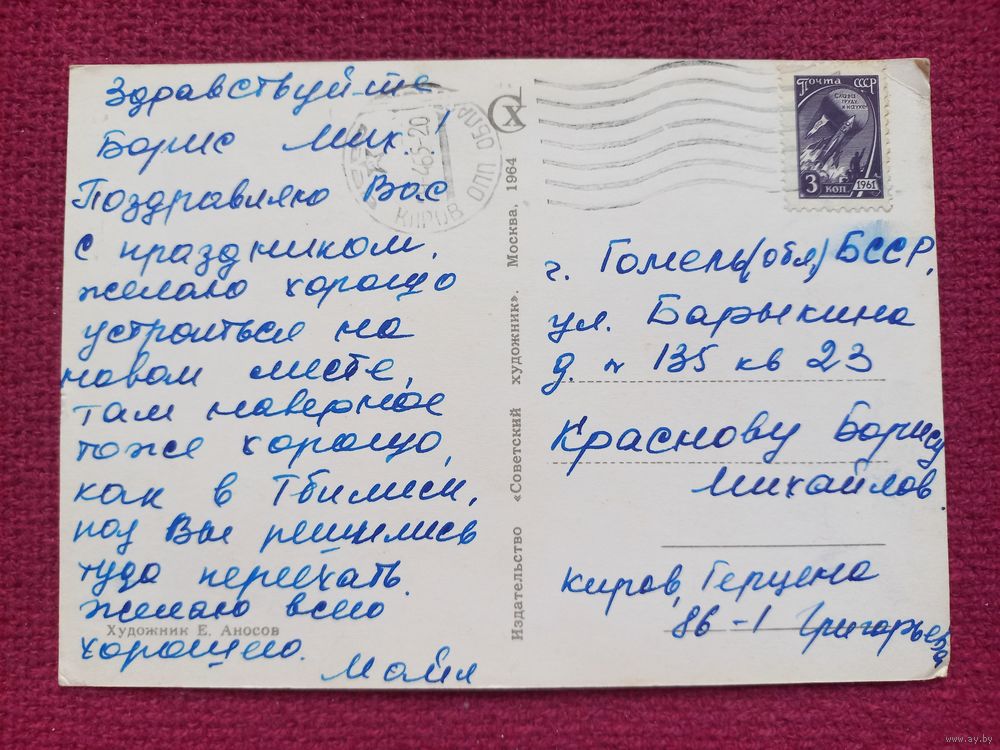 Здравствуйте
Борис Мих.!
Поздравляю Вас
с праздником,
желаю хорошо
устроиться на
новом месте,
там наверное
тоже хорошо,
как в Тбилиси,
раз Вы решились
туда переехать.
Желаю всего
хорошего.
Майя
Художник Е. Аносов
Издательство «Советский художник». Москва, 1964
КИРОВ ОПП ОБЛ
Почта СССР
Слава труду и науке!
3 коп 1961
г. Гомель (обл.) БССР,
ул. Барыкина
д. № 135 кв 23
Краснову Борису
Михайлов.
Киров, Герцена
86-1 Григорьева
www.ay.by